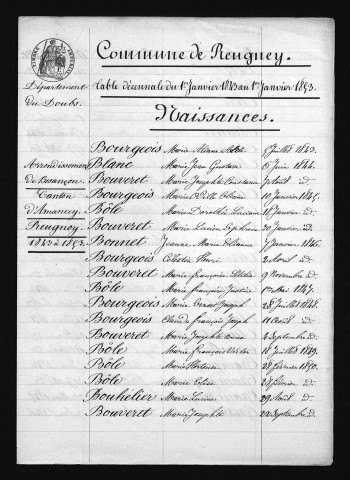 Commune de Reugney.
Département du Doubs.
Table décennale du 1er Janvier 1843 au 1er Janvier 1853.
Naissances.
Arrondissement de Besançon.
Canton d'Amancey.
Reugney.
1843 à 1853.
Bourgeois Marie 8 Juillet 1843.
Blanc Marie Jean Gustave 6 Juin 1844.
Bouveret Marie Josephte Constance 7 Août d°
Bourgeois Marie 10 Janvier 1845.
Bôle Marie Dorothée 11 Janvier d°
Bouveret Marie Lucien 30 Janvier d°
Bonnet Jeanne Marie 7 Janvier 1846.
Bourgeois Célestin Henri 2 Avril d°
Bouveret Marie françoise 9 Novembre d°
Bôle Marie françoise Justine 1er Mai 1847.
Bourgeois Marie Ernest Joseph 28 Juillet 1848.
Bourgeois Claude françois Joseph 11 Août d°
Bouveret Marie Josephte 4 Septembre d°
Bôle Marie françois Victor 18 Juillet 1849.
Bôle Marie 28 février 1850.
Bôle Marie 28 février d°
Bouhélier Marie 29 Août d°
Bouveret Marie Josephte 22 Septembre d°